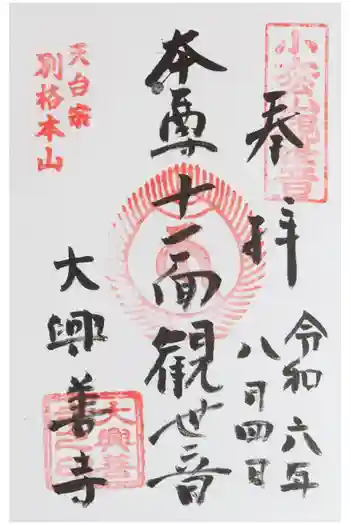 小松山観世音
奉拝
令和六年
八月四日
本尊
十一面観世音
天台宗
別格本山
大興善寺